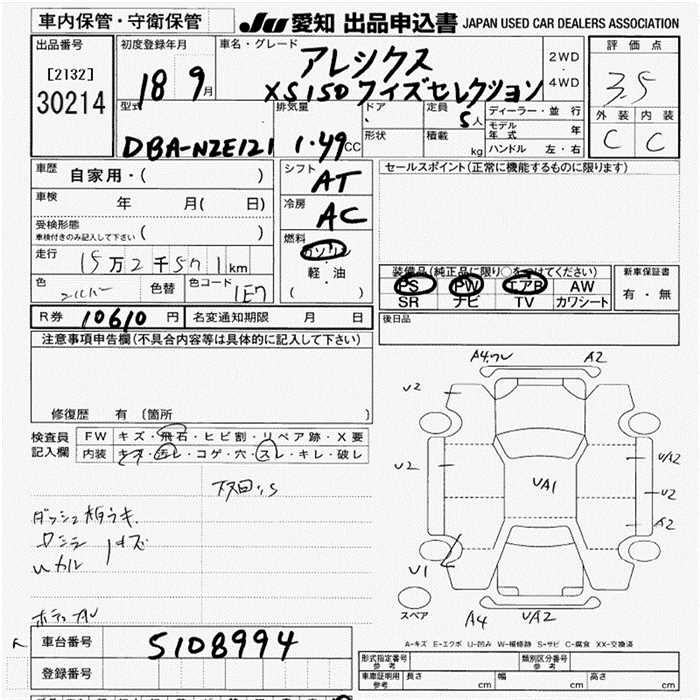 車内保管・守衛保管
JU 愛知 出品申込書 JAPAN USED CAR DEALERS ASSOCIATION
出品番号 初度登録年月 車名・グレード 評価点
[2132] 18 9月 アレックス 2WD・4WD 3.5
30214 XS150 ワイズセレクション
型式 排気量 ドア 定員 5人 ディーラー・並行 外装 内装
モデル年式 年 C C
DBA-NZE121 1.49CC 形状 積載 kg ハンドル 左・右
車歴 自家用・( ) シフト AT セールスポイント(正常に機能するものに限ります)
車検 年 月( 日) 冷房 AC
受検形態 ( )
車検付きのみ記入して下さい
燃料 ガソリン
走行 15万2千571km 軽・油
装備品(純正品に限り○をつけてください) 新車保証書
色 シルバー 色替 色コード 1E7 ( ) PS PW エアB AW 有・無
SR ナビ TV カワシート
R券 10610円 名変通知期限 月 日 後日品
注意事項申告欄(不具合内容等は具体的に記入して下さい)
A2
U2
修復歴 有 〔箇所 〕
検査員記入欄 FW キズ・飛石・ヒビ割・リペア跡・X要
内装 キズ・汚レ・コゲ・穴・スレ・キレ・破レ
U2 UA2
UA1 U2
ダッシュ A2
キズ
U1
スペア
A4 UA2
車台番号 5108994
A-キズ E-エクボ U-凹み W-補修跡 S-サビ C-腐食 XX-交換済
登録番号 形式指定番号 参考 類別区分番号 参考
車庫証明用 参考 長さ cm 幅 cm 高さ cm